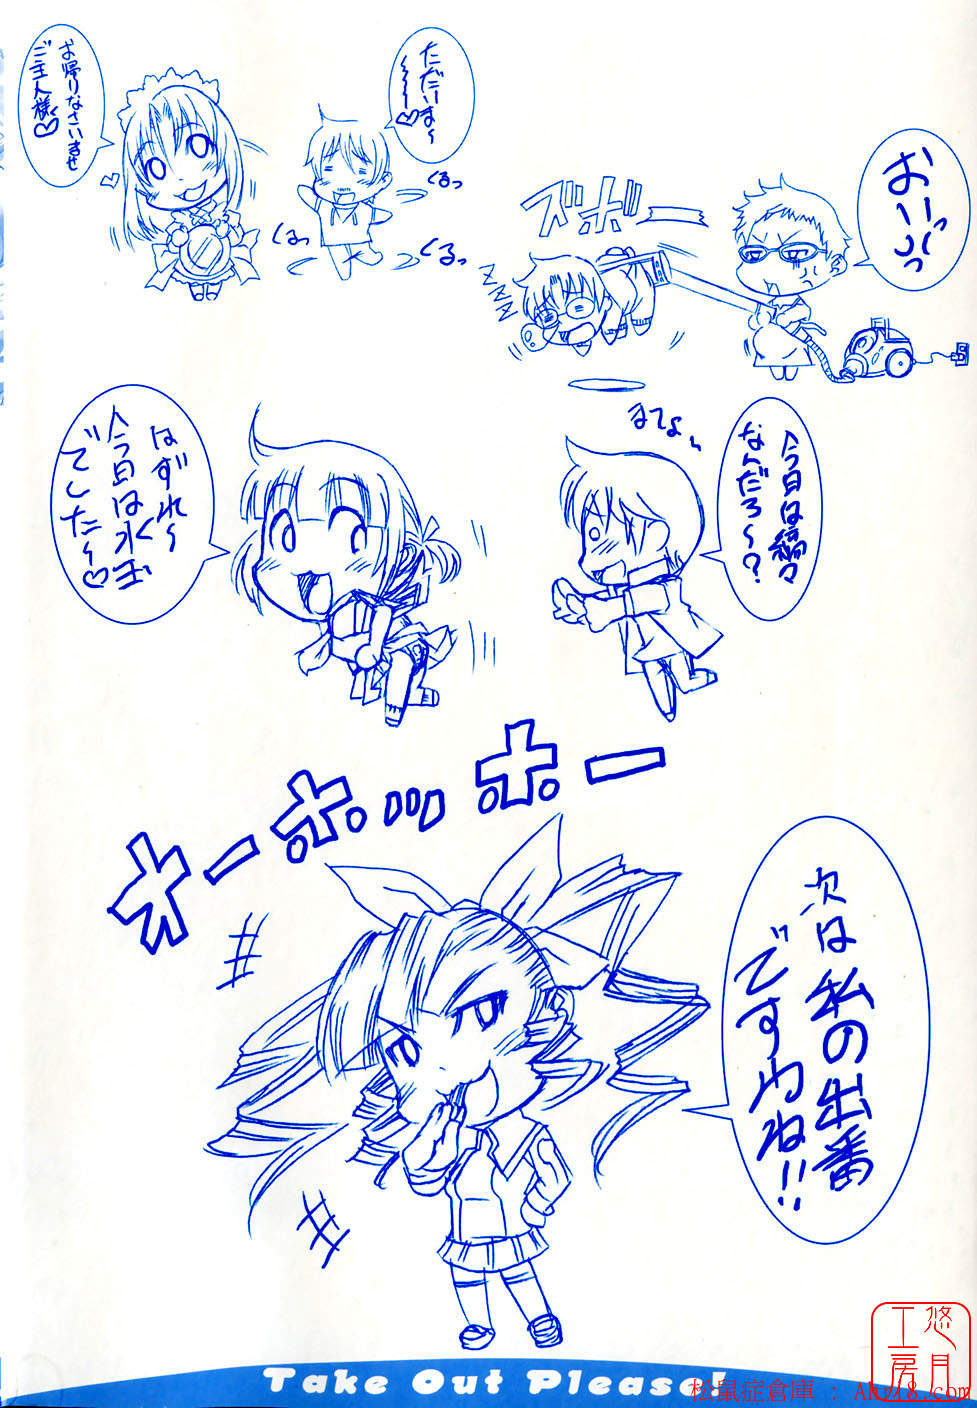 お帰りなさいませ
ご主人様♡
ただいま〜
〜〜〜♡
くるっ
くるっ
くるっ
ズボーー
ZZZZ
おいっっ
はずれ〜
今日は水玉
でした〜♡
まてよぉ
今日は縞々
なんだろ〜?
オーホッホー
次は私の出番
ですわね!!
Take Out Please!
悠月
工房
松鼠症倉庫 : Ahri8.com